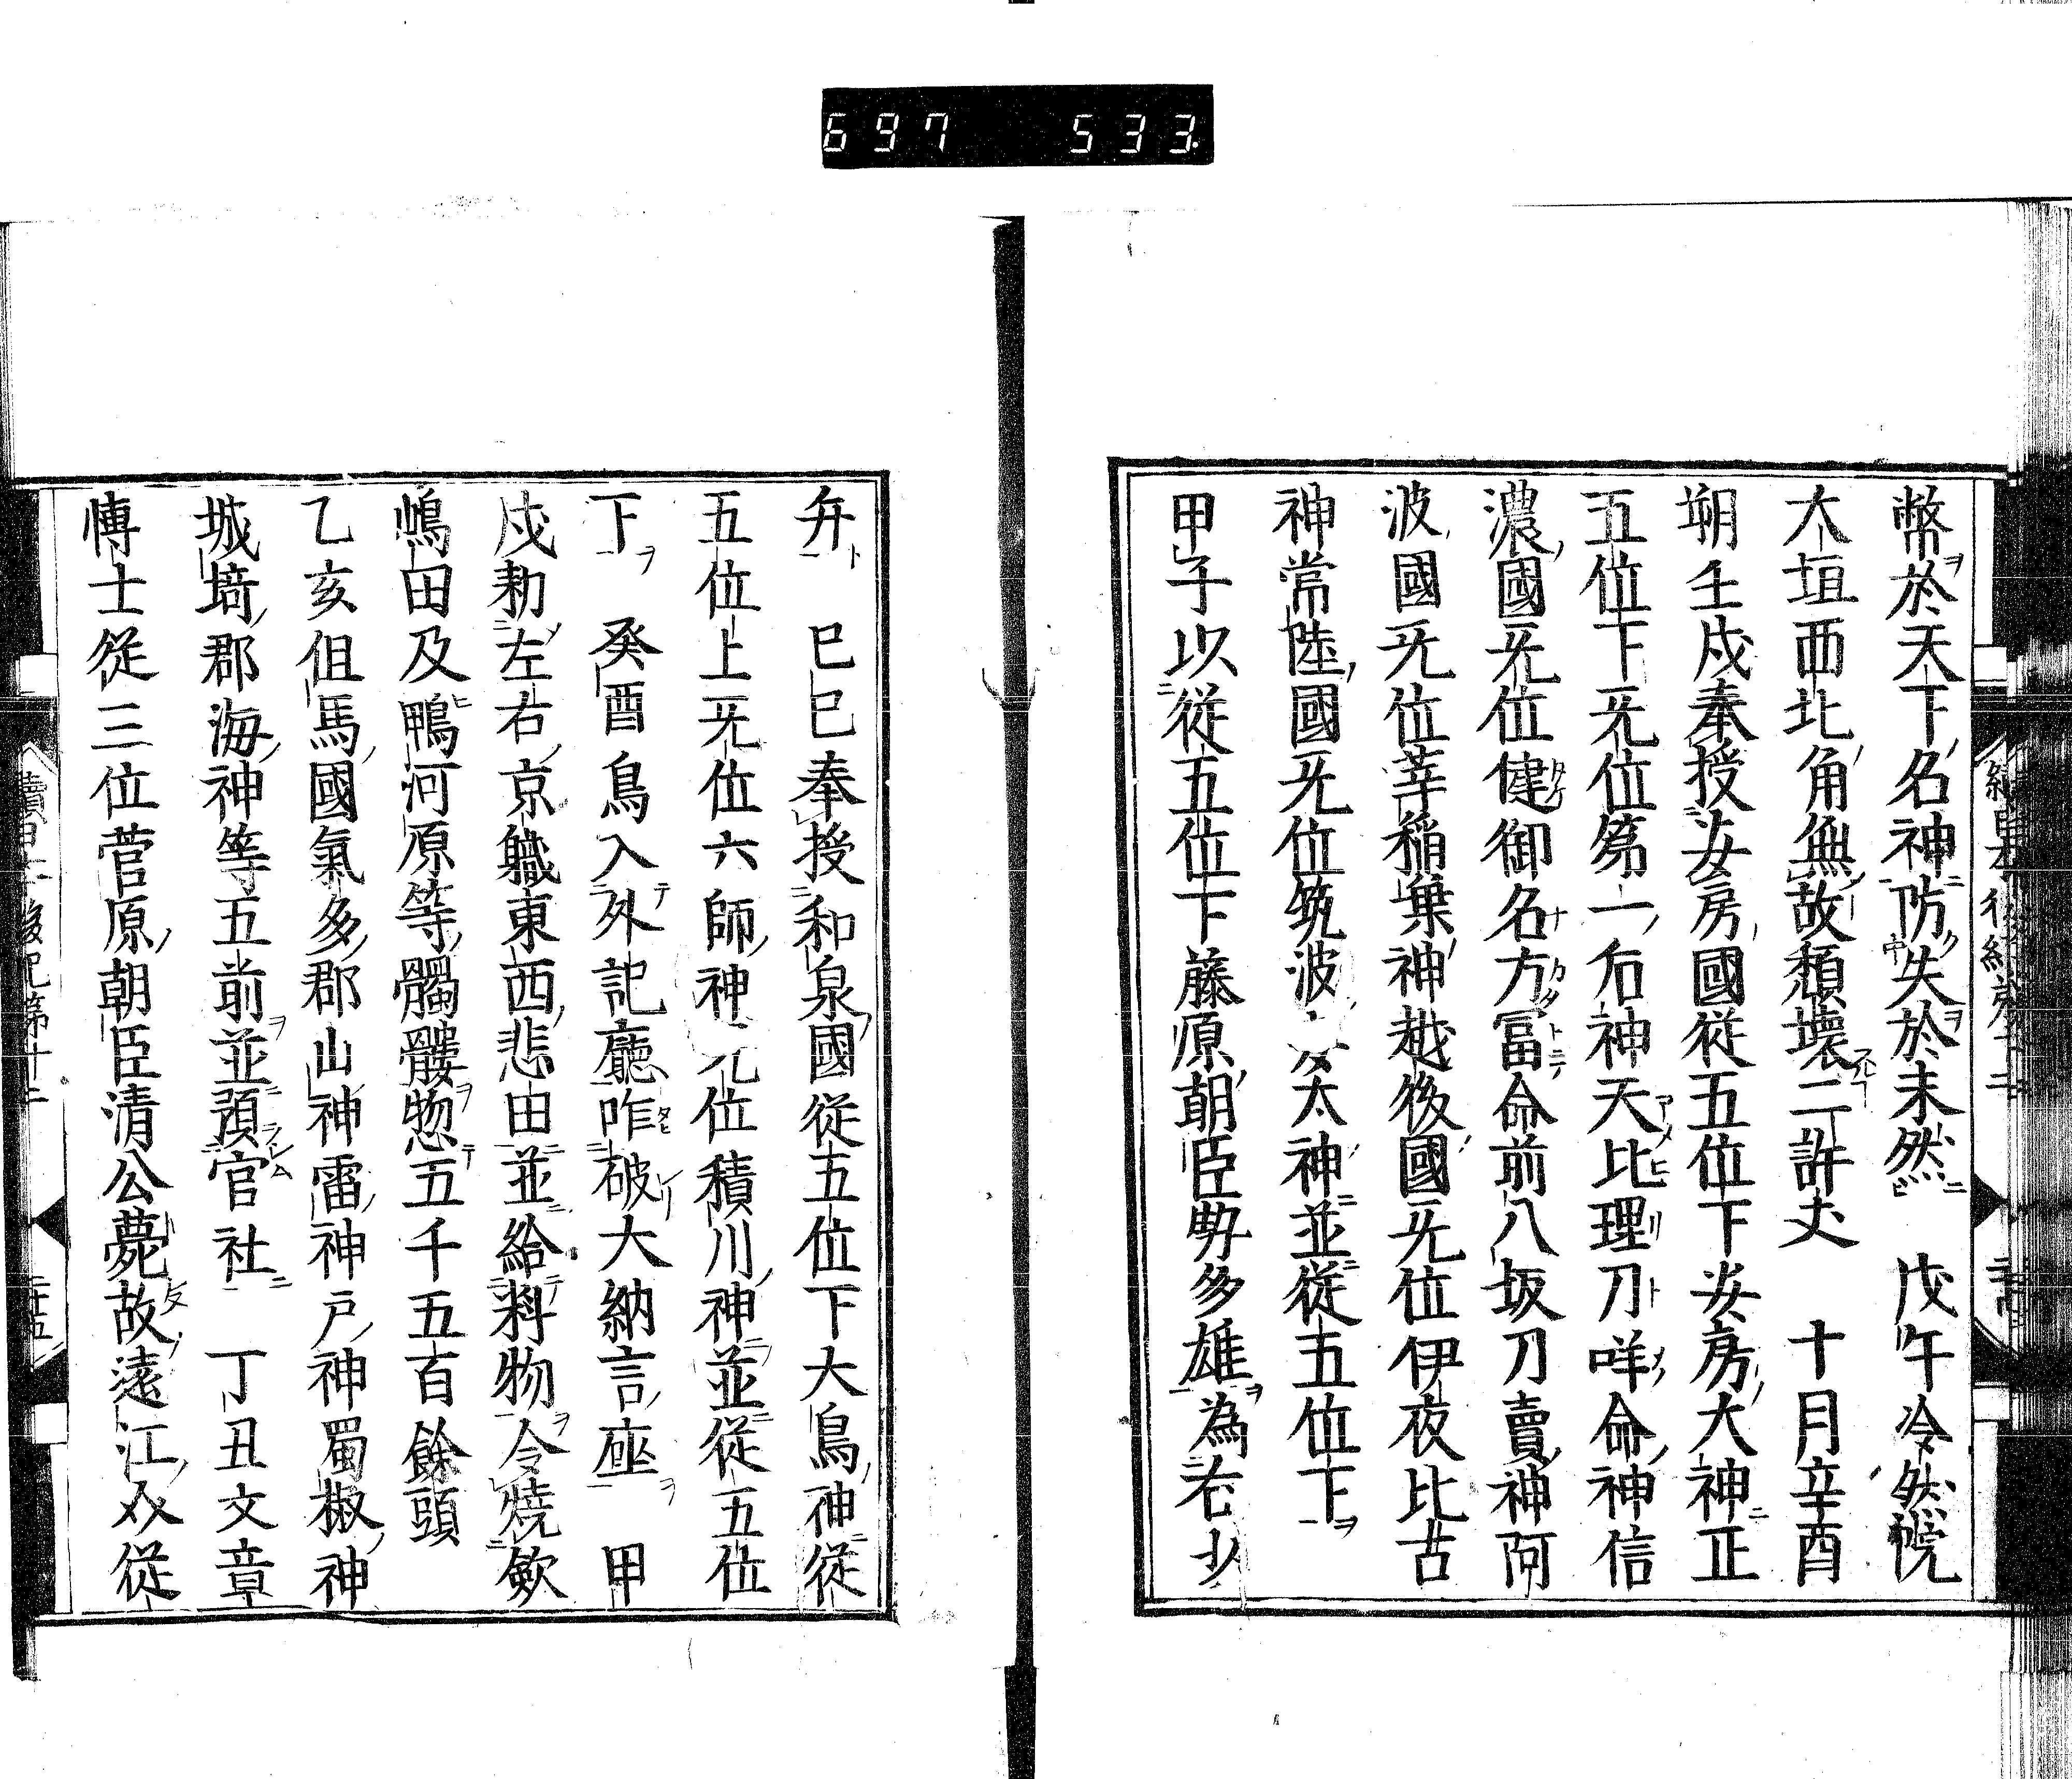 697 533
幣於天下名神防失於未然 戊午冷然院
大垣西北角無故頽壞二許丈 十月辛酉
朔壬戌奉授安房國從五位下安房大神正
五位下无位第一后神天比理刀咩命神信
濃國无位健御名方富命前八坂刀賣神阿
波國无位葦稲葉神越後國无位伊夜比古
神常陸國无位筑波女大神並從五位下
甲子以從五位下藤原朝臣勢多雄為右少
弁 己巳奉授和泉國從五位下大鳥神從
五位上无位六師神无位積川神並從五位
下 癸酉鳥入外記廳咋破大納言座 甲
戌勅左右京職東西悲田並給料物令燒歛
嶋田及鴨河原等髑髏惣五千五百餘頭
乙亥但馬國氣多郡山神雷神戸神蜀椒神
城埼郡海神等五前並預官社 丁丑文章
博士從三位菅原朝臣清公薨故遠江介從
續日本後紀第十二 二十五